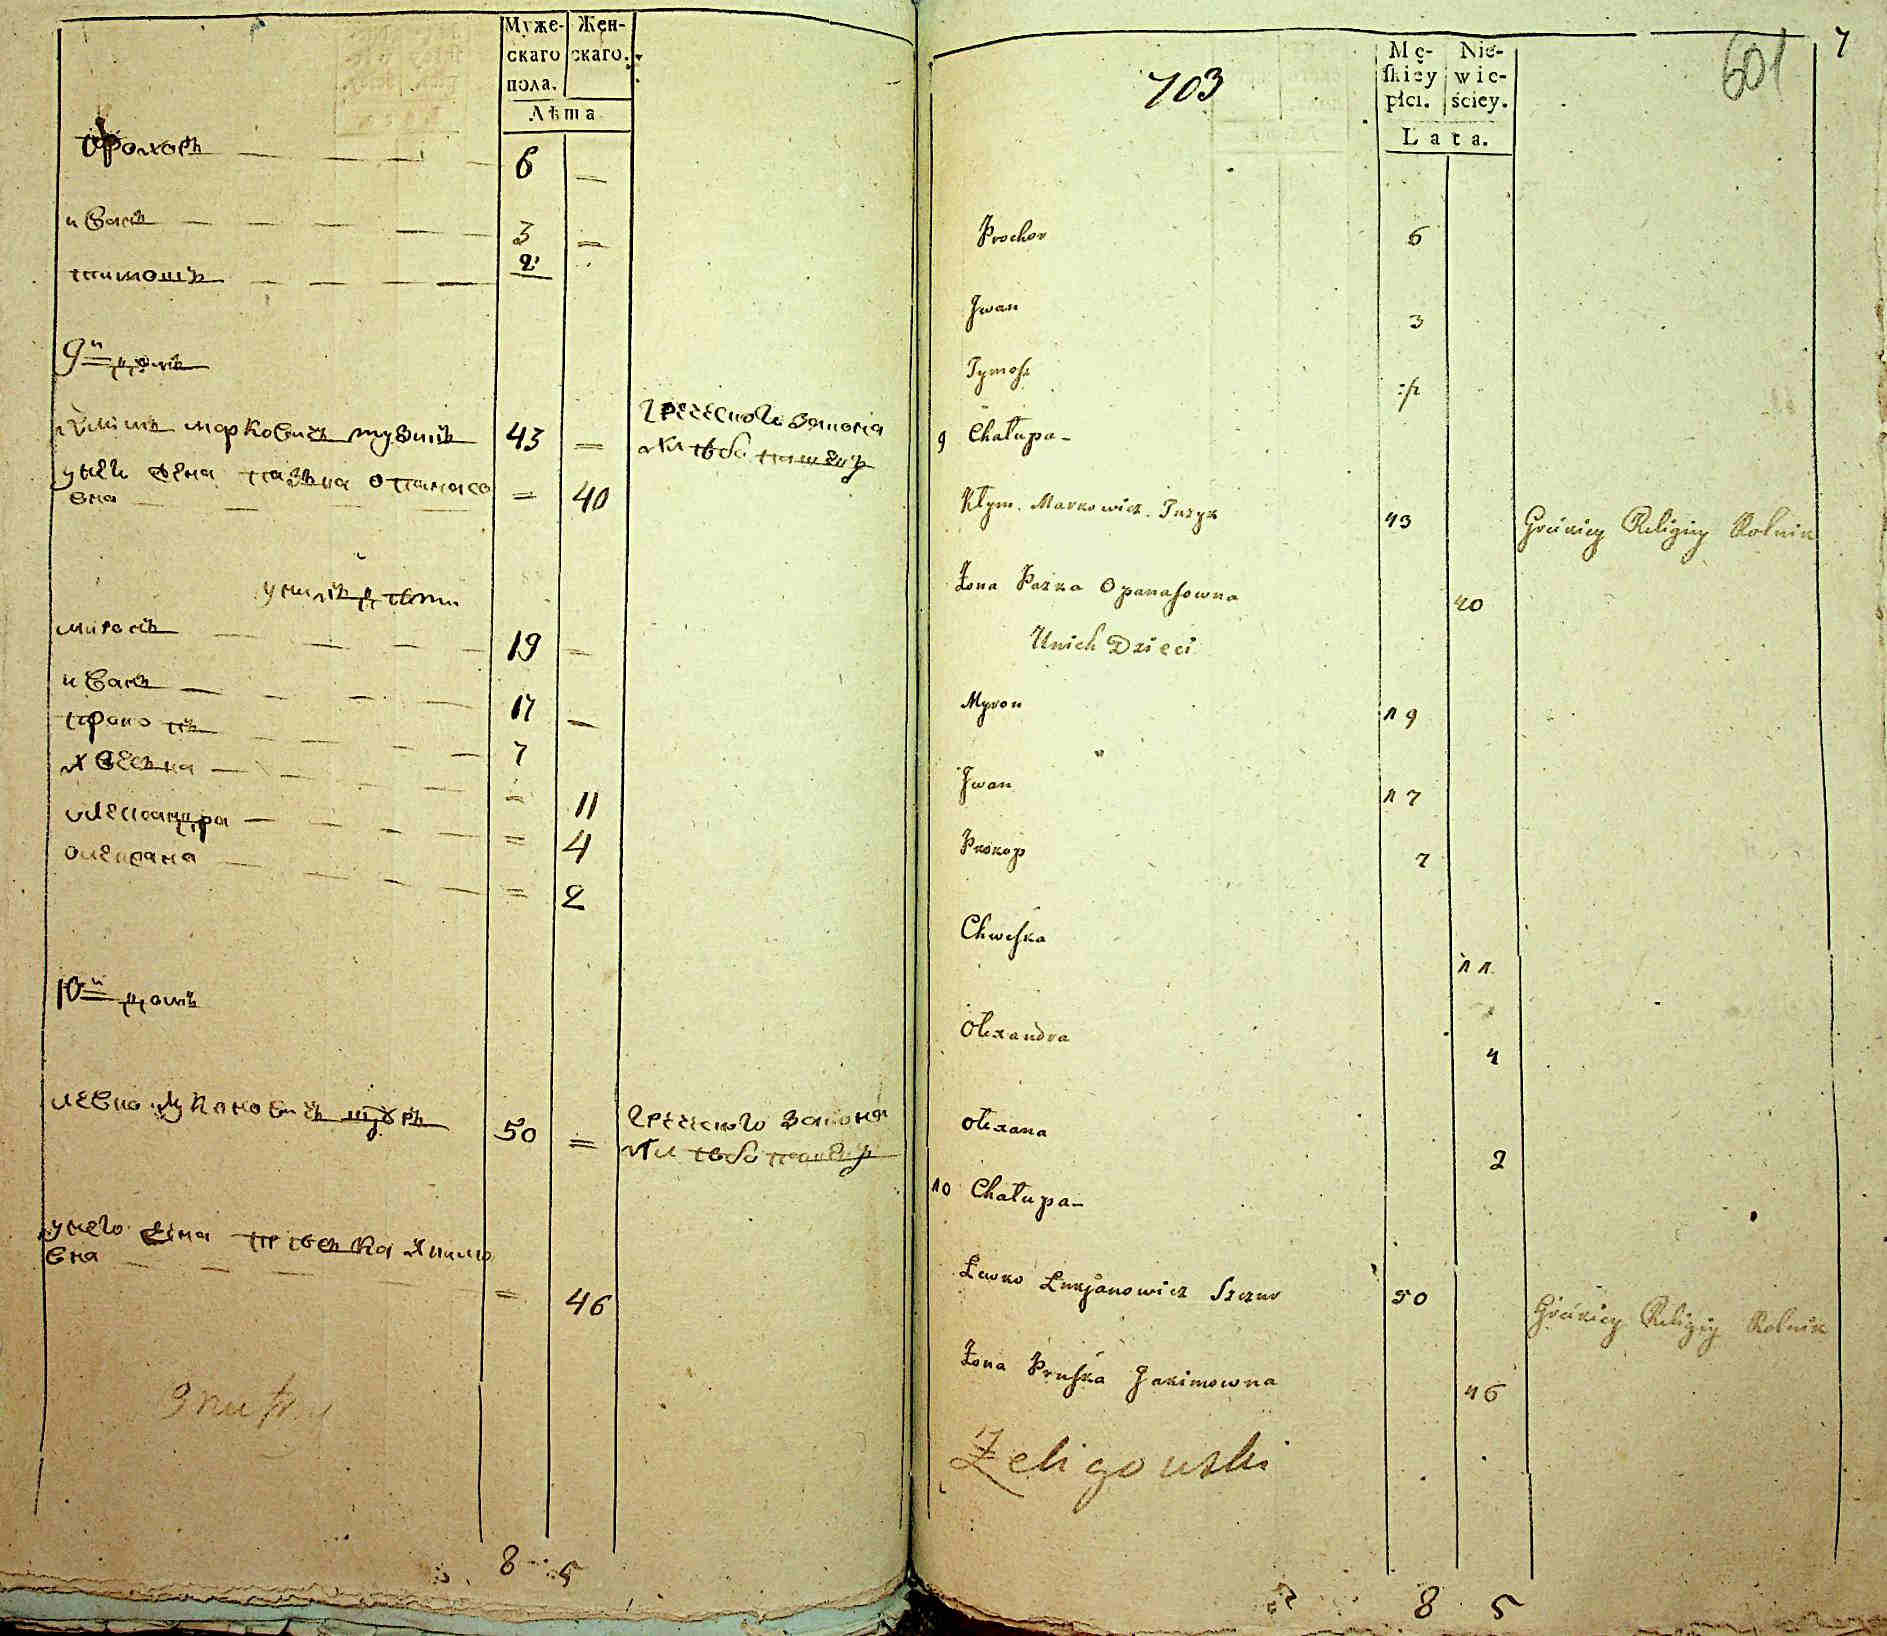 Муже- Жен-
скаго скаго.
пола.
Лѣта
Прохоръ 6 =
иванъ 3 =
тимошъ 2
9й домъ
Климъ марковичъ тузикъ 43 = греческого закона
хлѣбопашецъ
у него жена пазка опанасо
вна = 40
у нихъ дѣти
миронъ 19 =
иванъ 17 =
прокопъ 7
хвеска = 11
олександра = 4
олексана = 2
10й домъ
левко лукяновичъ щуръ 50 = греческого закона
хлѣбопашецъ
у него жена Якимо
вна = 46
8 5
703
601
7
Mę- Nie-
skiey wie-
płci. ściey.
Lata.
Prochor 6
Jwan 3
Tymosz
9 Chałupa
Kłym Markowicz Tuzyk 43 Greckiey Religiy Rolnik
Żona Pazka Opanasowna 40
U nich Dzieci
Myron 19
Jwan 17
Prokop 7
Chweska 11
Olexandra 4
Olexana 2
10 Chałupa
Lewko Lukjanowicz Szczur 50 Greckiey Religiy Rolnik
Żona Pruska Jakimowna 46
Żeligowski
8 5